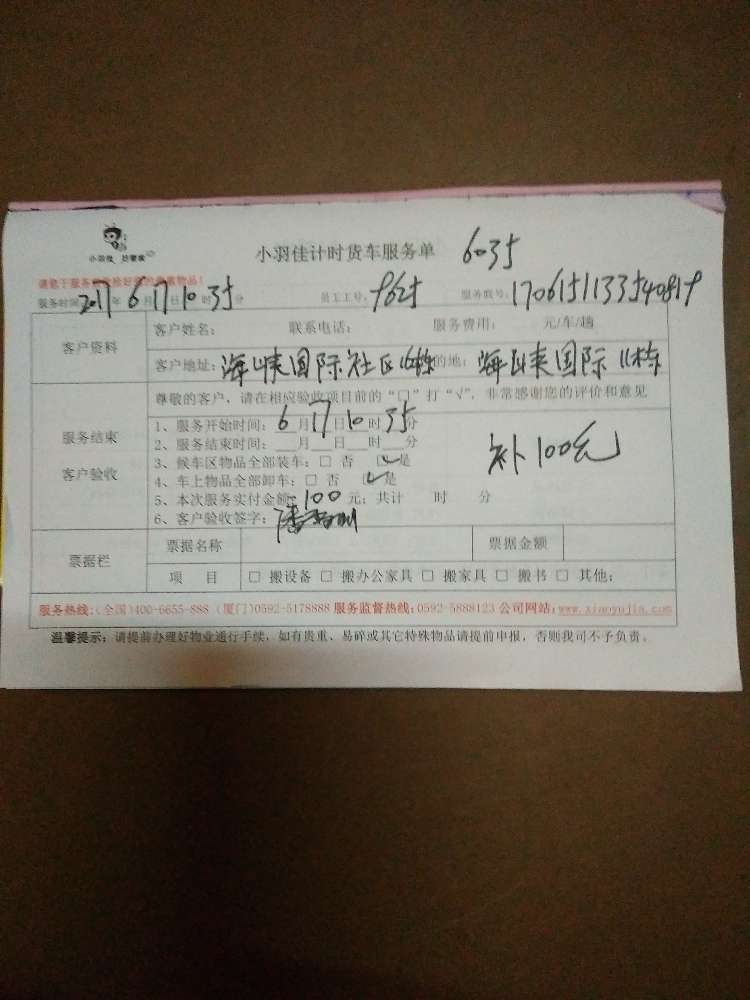 小羽佳 好管家
小羽佳计时货车服务单 6035
服务时间 2017年 6月 17日 10时 35分 员工工号: 9625 服务账号:
客户资料
客户姓名: 联系电话: 服务费用: 元/车/趟
客户地址: 海峡国际社区 的地: 海峡国际 11栋
尊敬的客户,请在相应验收项目前的“□”打“√”,非常感谢您的评价和意见
服务结束
客户验收
1、服务开始时间: 6月 17日 10时 35分
2、服务结束时间: __月__日__时__分
3、候车区物品全部装车: □ 否 ☑是
4、车上物品全部卸车: □ 否 ☑是
5、本次服务实付金额: 100 元; 共计 时 分
6、客户验收签字:
补100元
票据栏
票据名称 票据金额
项 目 □ 搬设备 □ 搬办公家具 □ 搬家具 □ 搬书 □ 其他:
服务热线:(全国)400-6655-888 (厦门)0592-5178888 服务监督热线:0592-5888123 公司网站:www.xiaoyujia.com
温馨提示: 请提前办理好物业通行手续,如有贵重、易碎或其它特殊物品请提前申报,否则我司不予负责。